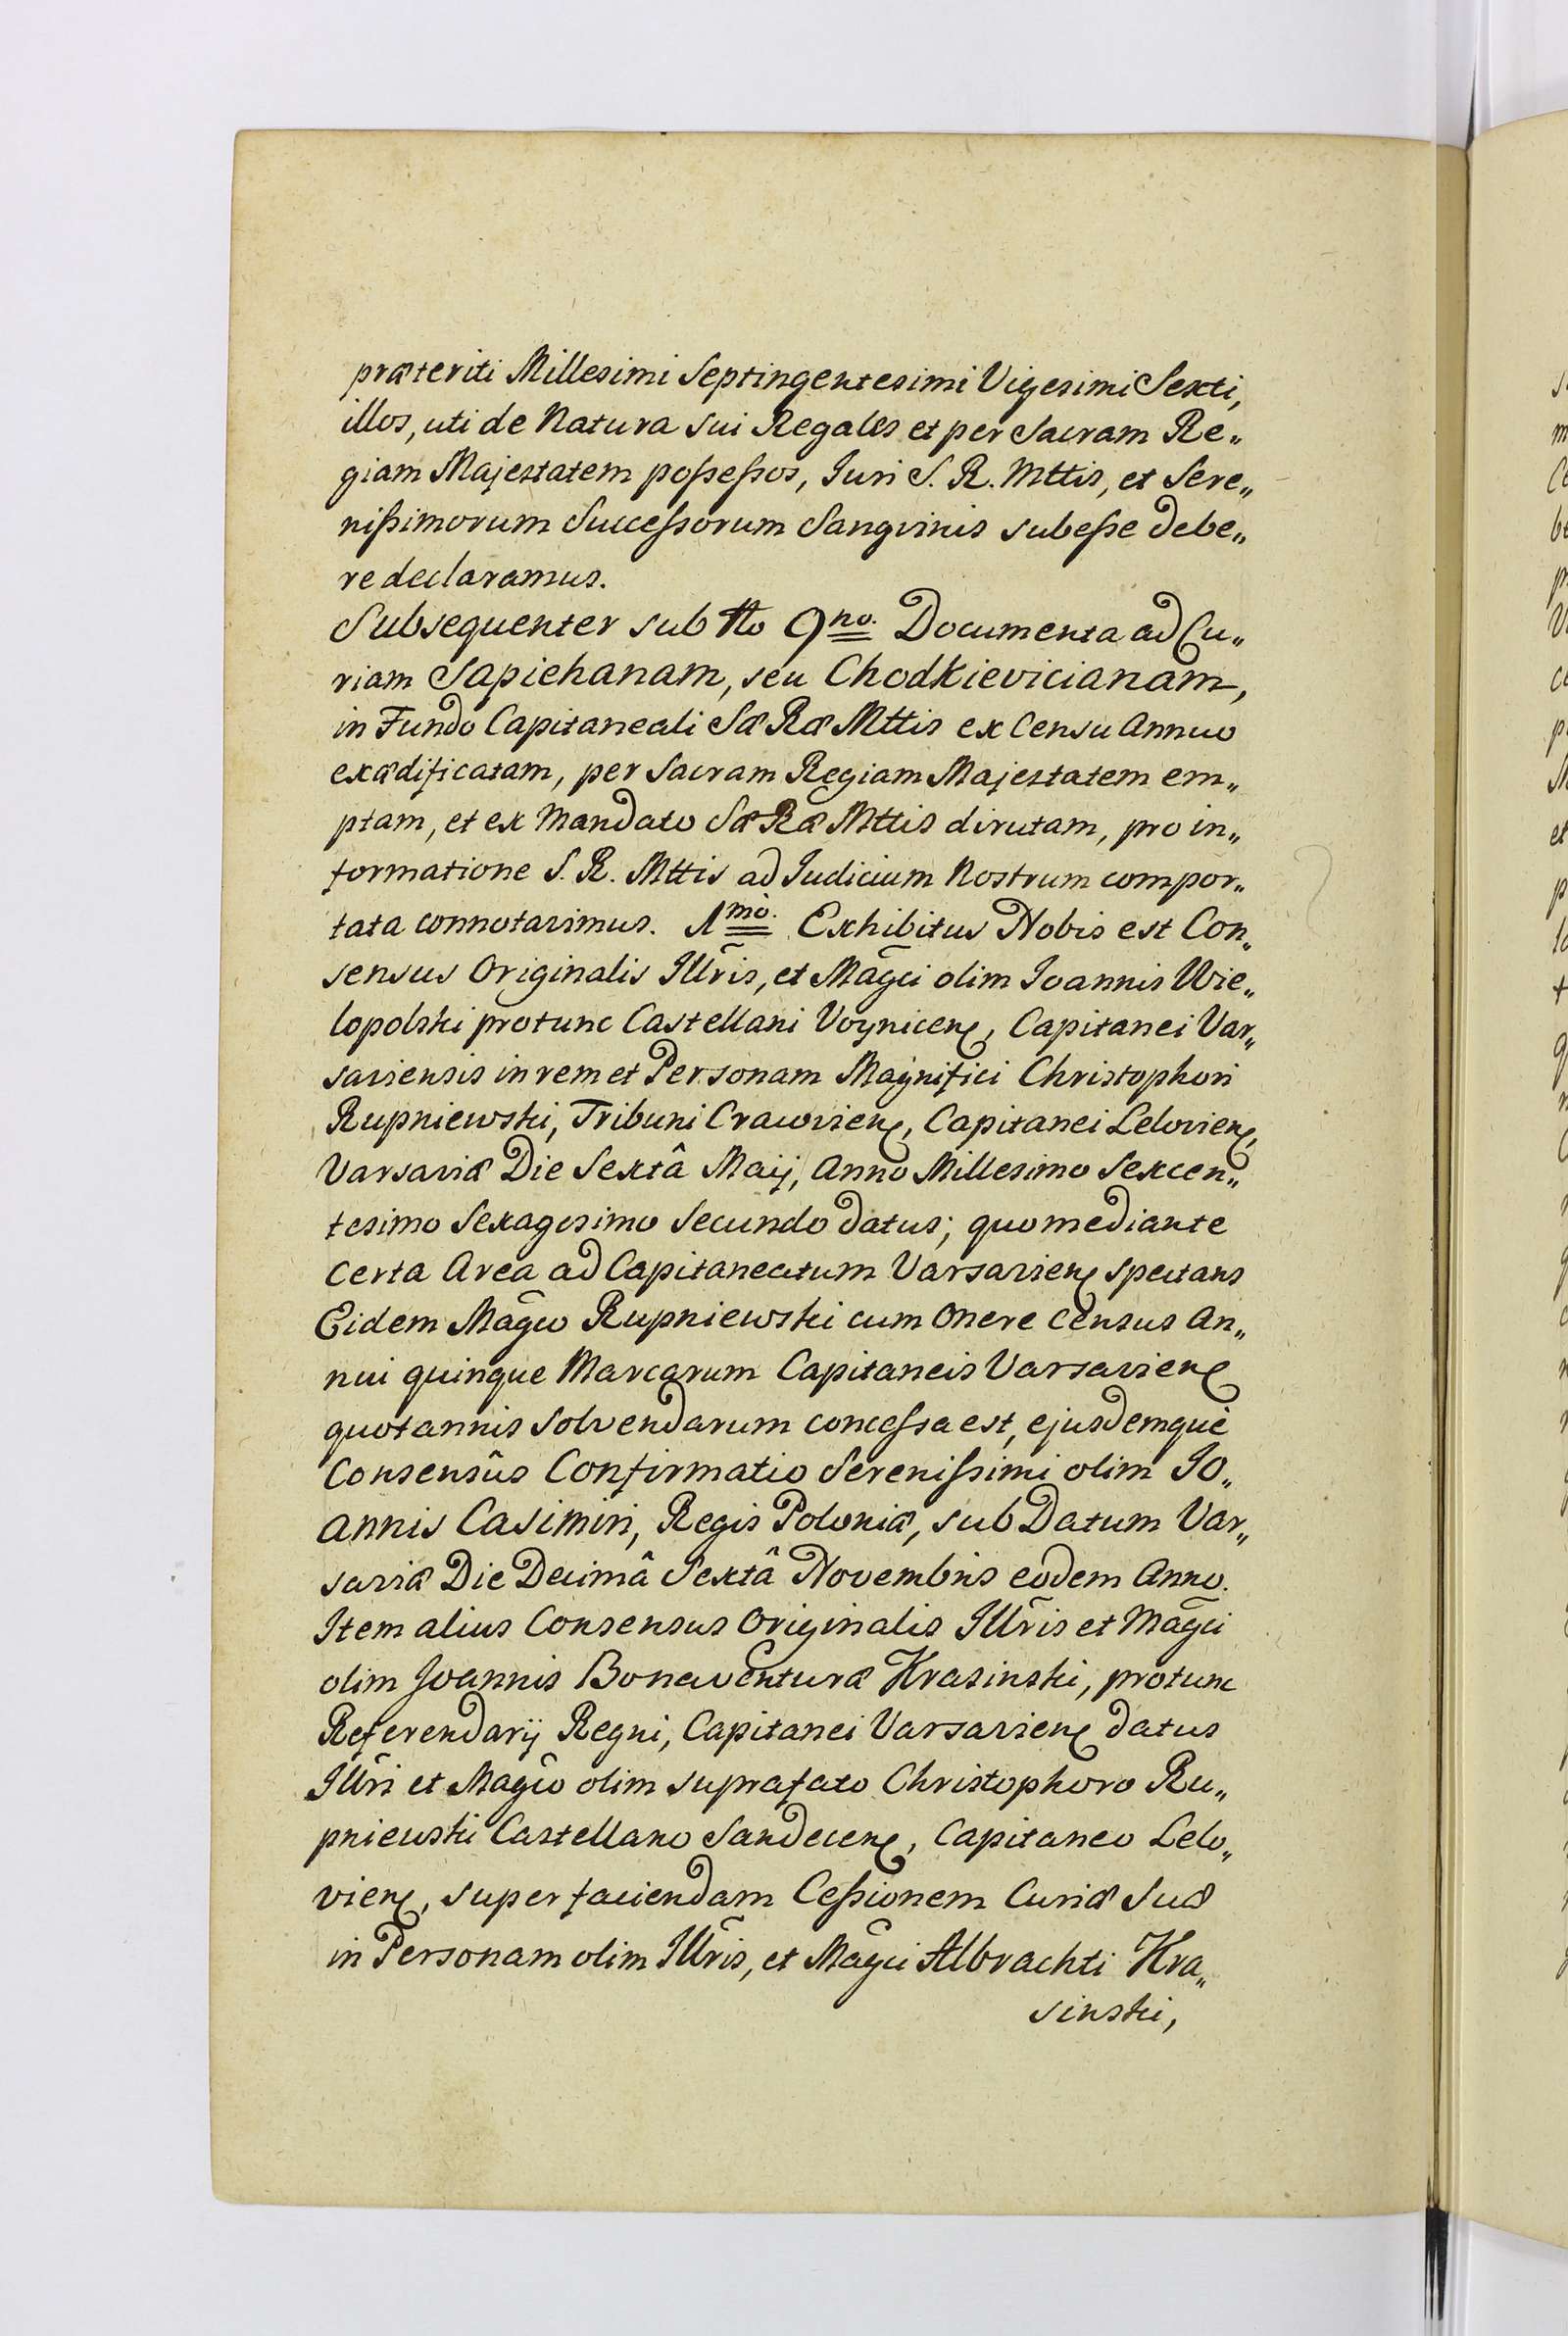 præteriti Millesimi Septingentesimi Vigesimi Sexti,
illos, uti de Natura sui Regales et per Sacram Re„
giam Majestatem poſseſsos, Iuri S. R. Mttis, et Sere„
niſsimorum Succeſsorum Sangvinis subeſse debe„
re declaramus.
Subsequenter sub No 9no. Documenta ad Cu„
riam Sapiehanam, seu Chodkievicianam,
in Fundo Capitaneali Sæ Ræ Mttis ex Censu Annuo
exædificatam, per Sacram Regiam Majestatem em„
ptam, et ex Mandato Sæ Ræ Mttis dirutam, pro in„
formatione S. R. Mttis ad Iudicium Nostrum compor„
tata connotavimus. 1mò. Exhibitus Nobis est Con„
sensus Originalis Illr̃is, et Mag̃ci olim Ioannis Wie„
lopolski protunc Castellani Voynicen, Capitanei Var„
saviensis in rem et Personam Magnifici Christophori
Rupniewski, Tribuni Cracovien, Capitanei Lelovien,
Varsaviæ Die Sextâ Maij, Anno Millesimo Sexcen„
tesimo Sexagesimo Secundo datus; quo mediante
Certa Area ad Capitaneatum Varsavien spectans
Eidem Mag̃co Rupniewski cum Onere Census An„
nui quinque Marcarum Capitaneis Varsavien
quotannis solvendarum conceſsa est, ejusdemque
Consensûs Confirmatio Sereniſsimi olim Io„
annis Casimiri, Regis Poloniæ, sub Datum Var„
saviæ Die Decimâ Sextâ Novembris eodem Anno.
Item alius Consensus Originalis Illr̃is et Mag̃ci
olim Joannis Bonaventuræ Krasinski, protunc
Referendarij Regni, Capitanei Varsavien datus
Illr̃i et Mag̃co olim suprafato Christophoro Ru„
pniewski Castellano Sandecen, Capitaneo Lelo„
vien, super faciendam Ceſsionem Curiæ Suæ
in Personam olim Illr̃is, et Mag̃ci Albrachti Kra„
sinski,